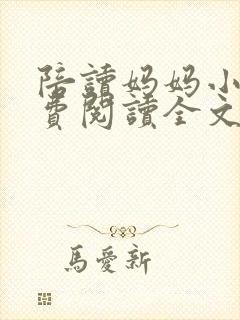 陪讀妈妈小
費閱讀全文
馬愛新